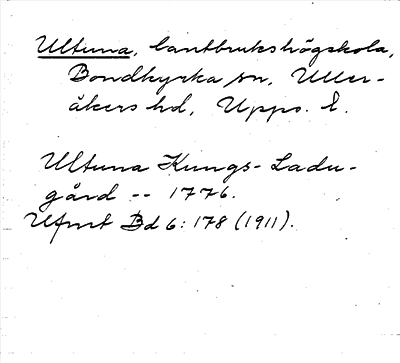 Ultuna, lantbrukshögskola,
Bondkyrka sn, Uller-
åkers hd, Upps. l.
Ultuna Kungs-Ladu-
gård -- 1776.
Ufmt Bd 6: 178 (1911).